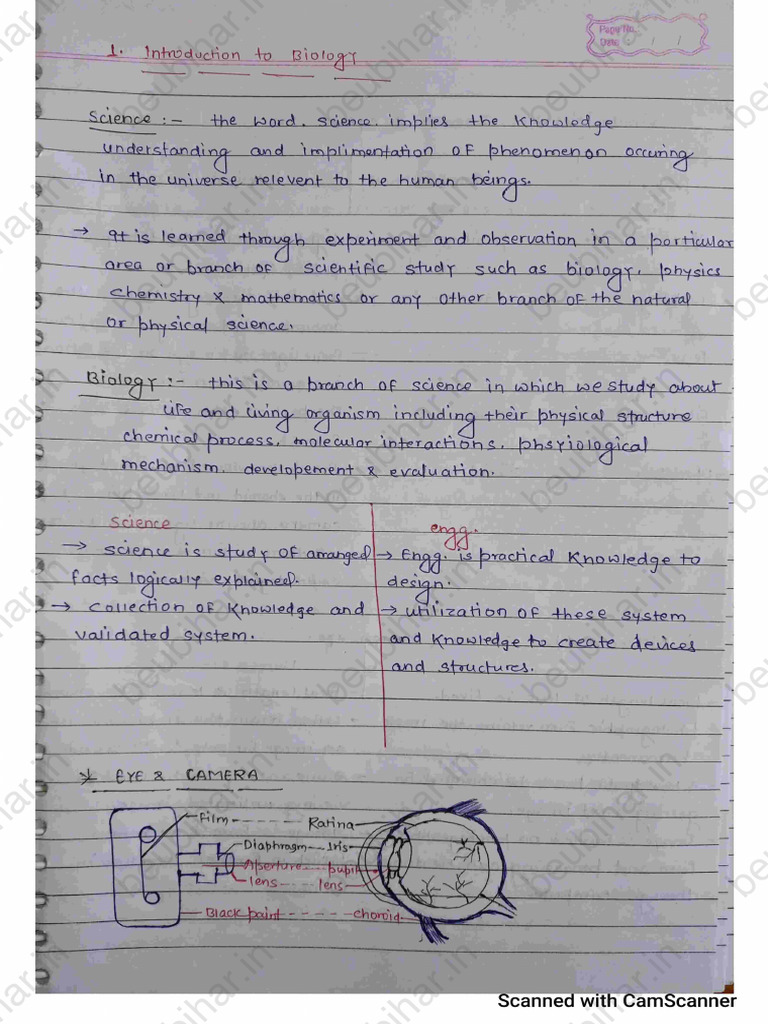 Page No.
Date : / /
1. Introduction to Biology
Science :- the word. science. implies the knowledge
understanding and implimentation of phenomenon occuring
in the universe relevent to the human beings.
→ It is learned through experiment and observation in a particular
area or branch of scientific study such as biology, physics
chemistry & mathematics or any other branch of the natural
or physical science.
Biology :- this is a branch of science in which we study about
life and living organism including their physical structure
chemical process, molecular interactions, phsyiological
mechanism, developement & evaluation.
Science
engg.
→ science is study of arranged
facts logically explained.
→ collection of knowledge and
validated system.
→ Engg. is practical knowledge to
design.
→ utilization of these system
and knowledge to create devices
and structures.
* EYE & CAMERA
Film - - - - - - Ratina
Diaphragm - - Iris
Aperture - - - pupil
lens - - - - lens
Black paint - - - - - - choroid
beubihar.in
Scanned with CamScanner